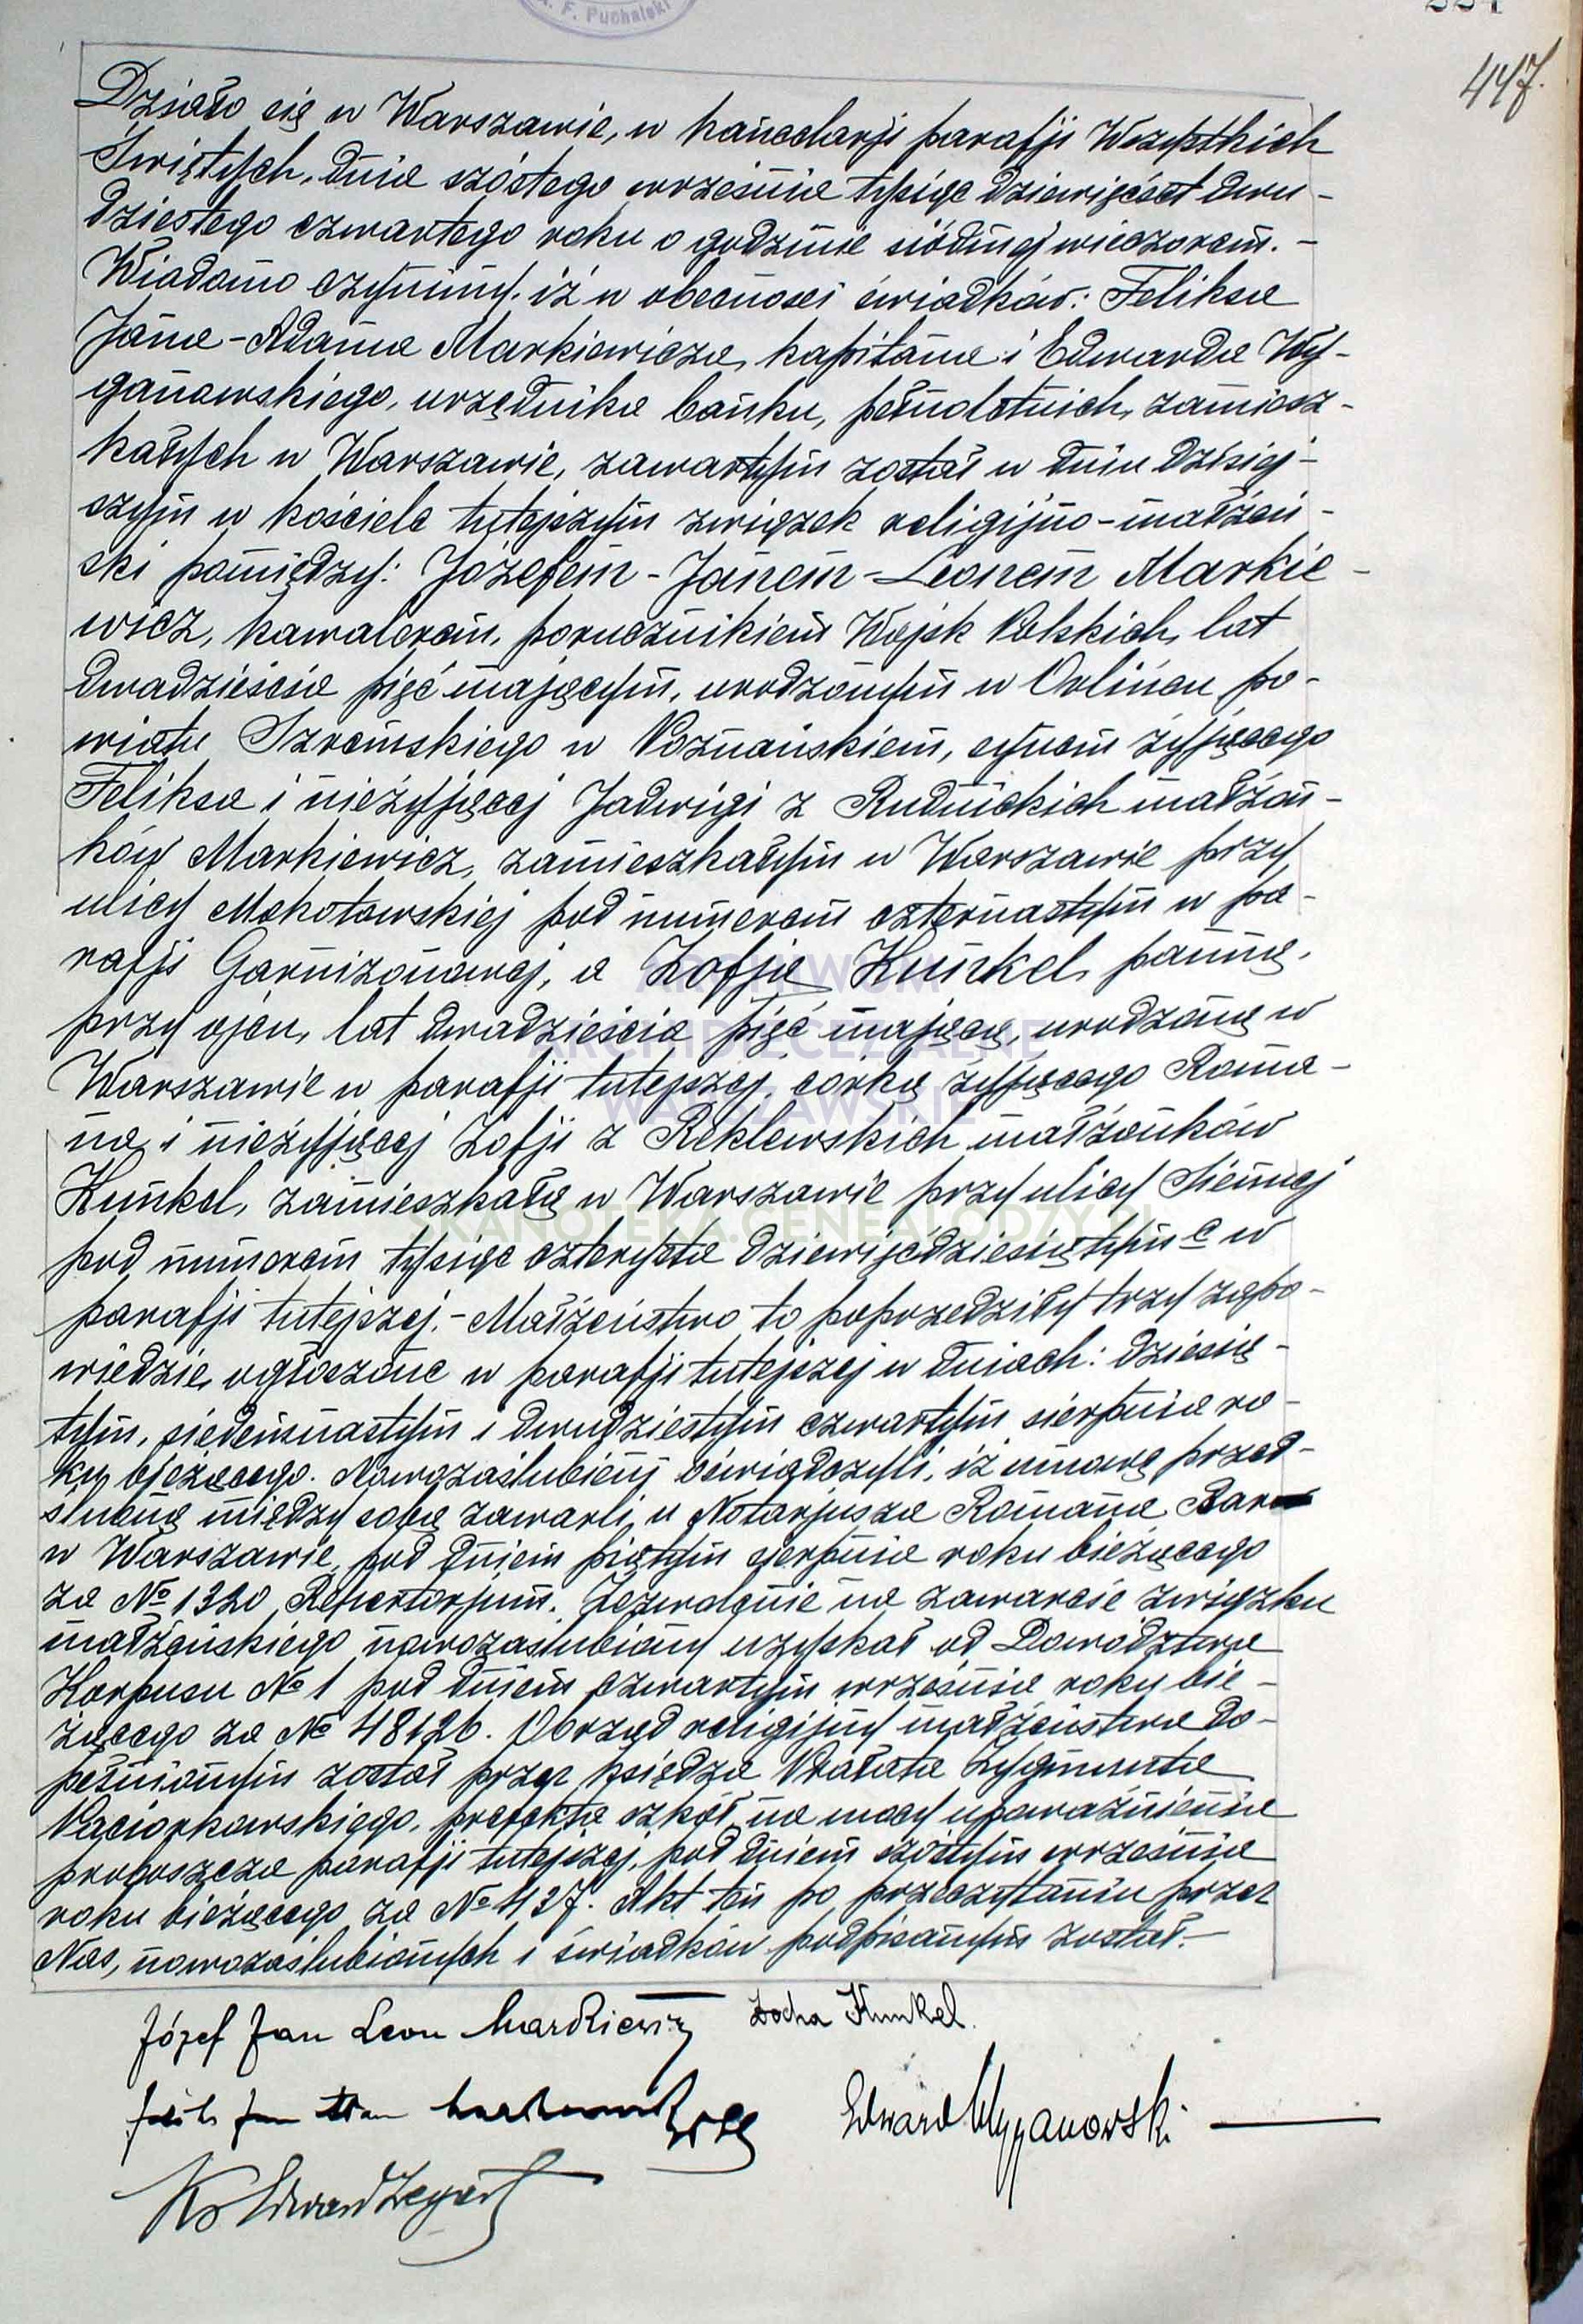 F. Puchalski
447.
Działo się w Warszawie, w kancelarji parafji Wszystkich
Świętych, dnia szóstego września tysiąc dziewięćset dwu-
dziestego czwartego roku o godzinie siódmej wieczorem. -
Wiadomo czynimy, iż w obecności świadków: Feliksa
Jana-Adama Markiewicza, kapitana i Edwarda Wy-
ganowskiego, urzędnika banku, pełnoletnich, zamiesz-
kałych w Warszawie, zawartym został w dniu dzisiej-
szym w kościele tutejszym związek religijno-małżeń-
ski pomiędzy: Józefem-Janem-Leonem Markie-
wicz, kawalerem, porucznikiem Wojsk Polskich, lat
dwadzieścia pięć mającym, urodzonym w powiatu
wiatu Szremskiego w Poznańskiem, synem żyjącego
Feliksa i nieżyjącej Jadwigi z Rudnickich małżon-
ków Markiewicz, zamieszkałym w Warszawie przy
ulicy Mokotowskiej pod numerem czternastym w pa-
rafji Garnizonowej, a Zofją Kunkel, panną,
przy ojcu, lat dwadzieścia pięć mającą, urodzoną w
Warszawie w parafji tutejszej, córką żyjącego Roma-
na i nieżyjącej Zofji z Reklewskich małżonków
Kunkel, zamieszkałą w Warszawie przy ulicy Siennej
pod numerem tysiąc czterysta dziewięćdziesiątym c w
parafji tutejszej. - Małżeństwo to poprzedziły trzy zapo-
wiedzie, ogłoszone w parafji tutejszej w dniach: dziesią-
tym, siedemnastym i dwudziestym czwartym sierpnia ro-
ku bieżącego. Nowozaślubieni oświadczyli, iż umowę przed-
ślubną między sobą zawarli u Notarjusza Romana
w Warszawie, pod dniem piątym sierpnia roku bieżącego
za № 1320 Repertorjum. Zezwolenie na zawarcie związku
małżeńskiego nowozaślubiony uzyskał od Dowództwa
Korpusu № 1 pod dniem czwartym września roku bie-
żącego za № 48126. Obrząd religijny małżeństwa do-
pełnionym został przez księdza Prałata Zygmunta
Paciorkowskiego, prefekta szkół, na mocy upoważnienia
proboszcza parafji tutejszej, pod dniem szóstym września
roku bieżącego za № 437. Akt ten po przeczytaniu przez
Nas, nowozaślubionych i świadków podpisanym został. -
Józef Jan Leon Markiewicz Zocha Kunkel.
Edward Wyganowski
Ks Edward
ARCHIWUM
ARCHIDIECEZJALNE
WARSZAWSKIE
SKANOTEKA.GENEALODZY.PL